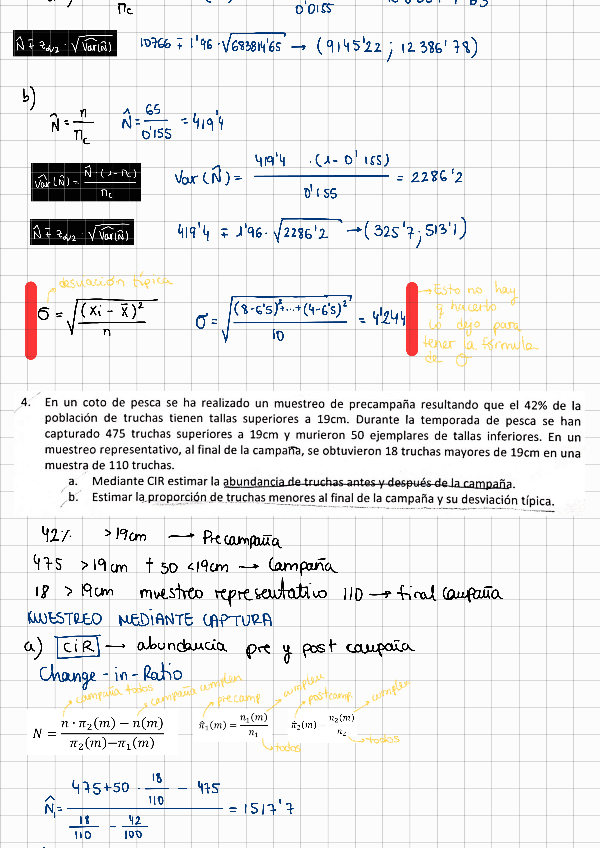 n_c
0'0155
N̂ ∓ z_α/2 · √Var(N̂) 10766 ∓ 1'96 · √683814'65 → (9145'22 ; 12386'78)
b)
N̂ = n/n_c N̂ = 65/0'155 = 419'4
Var(N̂) = N̂ · (1-n_c)/n_c Var(N̂) = 419'4 · (1-0'155)/0'155 = 2286'2
N̂ ∓ z_α/2 · √Var(N̂) 419'4 ∓ 1'96 · √2286'2 → (325'7 ; 513'1)
desviación típica
σ = √((xi - x̄)²/n) σ = √((8-6'5)²+...+(4-6'5)²/10) = 4'244
→ Esto no hay
q hacerlo
lo dejo para
tener la fórmula
de σ
4. En un coto de pesca se ha realizado un muestreo de precampaña resultando que el 42% de la
población de truchas tienen tallas superiores a 19cm. Durante la temporada de pesca se han
capturado 475 truchas superiores a 19cm y murieron 50 ejemplares de tallas inferiores. En un
muestreo representativo, al final de la campaña, se obtuvieron 18 truchas mayores de 19cm en una
muestra de 110 truchas.
a. Mediante CIR estimar la abundancia de truchas antes y después de la campaña.
b. Estimar la proporción de truchas menores al final de la campaña y su desviación típica.
42% >19cm → Precampaña
475 >19cm + 50 <19cm → Campaña
18 > 19cm muestreo representativo 110 → final campaña
MUESTREO MEDIANTE CAPTURA
a) CIR → abundancia pre y post campaña
Change-in-Ratio
campaña todos
campaña cumplen
precamp
cumplen
postcamp
cumplen
N = (n·π₂(m)−n(m))/(π₂(m)−π₁(m)) π̂₁(m) = n₁(m)/n₁ π̂₂(m) n₂(m)/n₂
todos
todos
N̂₁ = (475+50 · 18/110 - 475)/(18/110 - 42/100) = 1517'7